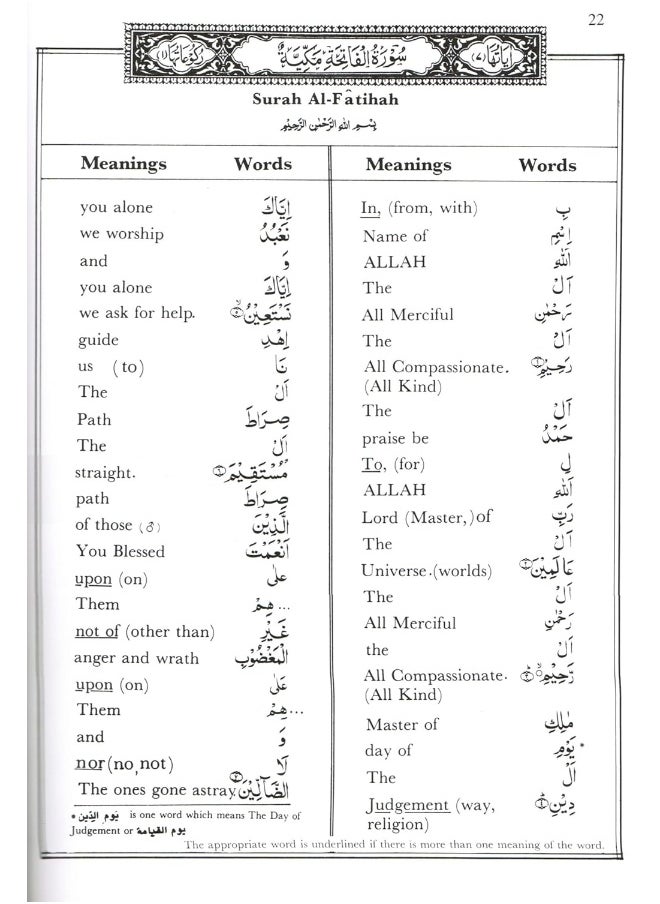 22
اٰيَاتُهَا (٧) سُوْرَةُ الْفَاتِحَةِ مَكِّيَّةٌ رُكُوْعَاتُهَا (١)
Surah Al-Fâtihah
بِسْمِ اللهِ الرَّحْمٰنِ الرَّحِيْمِ
Meanings Words
In, (from, with) بِ
Name of اِسْمِ
ALLAH اَللهِ
The اَلْ
All Merciful رَحْمٰنِ
The اَلْ
All Compassionate. رَحِيْمِ ①
(All Kind)
The اَلْ
praise be حَمْدُ
To, (for) لِ
ALLAH اَللهِ
Lord (Master,) of رَبِّ
The اَلْ
Universe. (worlds) عَالَمِيْنَ ②
The اَلْ
All Merciful رَحْمٰنِ
the اَلْ
All Compassionate. رَّحِيْمِ ③
(All Kind)
Master of مٰلِكِ
day of يَوْمِ *
The اَلْ
Judgement (way, دِيْنِ ④
religion)
Meanings Words
you alone اِيَّاكَ
we worship نَعْبُدُ
and وَ
you alone اِيَّاكَ
we ask for help. نَسْتَعِيْنُ ⑤
guide اِهْدِ
us (to) نَا
The اَلْ
Path صِرَاطَ
The اَلْ
straight. مُسْتَقِيْمَ ⑥
path صِرَاطَ
of those (♂) الَّذِيْنَ
You Blessed اَنْعَمْتَ
upon (on) عَلٰى
Them ... هِمْ
not of (other than) غَيْرِ
anger and wrath الْمَغْضُوْبِ
upon (on) عَلٰى
Them ... هِمْ
and وَ
nor (no, not) لَا
The ones gone astray. الضَّآلِّيْنَ ⑦
* يَوْمِ الدِّيْنِ is one word which means The Day of
Judgement or يوم القيامة
The appropriate word is underlined if there is more than one meaning of the word.